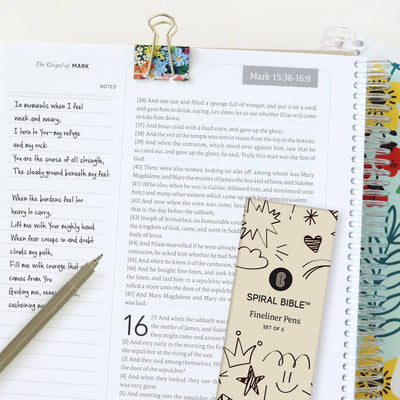 The Gospel of MARK
NOTES
In moments when I feel
weak and weary,
I turn to You—my refuge
and my rock.
You are the source of all strength,
The steady ground beneath my feet
When the burdens feel too
heavy to carry,
Lift me with Your mighty hand.
When fear creeps in and doubt
clouds my path,
Fill me with courage that
comes from You
Guiding me, renewing
sustaining me
Mark 15:36-16:9
[36] And one ran and filled a spunge full of vinegar, and put it on a reed,
and gave him to drink, saying, Let alone; let us see whether Elias will come
to take him down.
[37] And Jesus cried with a loud voice, and gave up the ghost.
[38] And the veil of the temple was rent in twain from the top to the bottom.
[39] And when the centurion, which stood over against him, saw that he
so cried out, and gave up the ghost, he said, Truly this man was the Son of
God.
[40] There were also women looking on afar off: among whom was Mary
Magdalene, and Mary the mother of James the less and of Joses, and Salome;
[41] (Who also, when he was in Galilee, followed him, and ministered unto
him;) and many other women which came up with him unto Jerusalem.
[42] And now when the even was come, because
is, the day before the sabbath,
[43] Joseph of Arimathea, an honourable
the kingdom of God, came, and went in boldly
body of Jesus.
[44] And Pilate marvelled if he were already
centurion, he asked him whether he had been
[45] And when he knew it of the centurion,
[46] And he bought fine linen, and took
linen, and laid him in a sepulchre
rolled a stone unto the door of the
[47] And Mary Magdalene and Mary
16
[1] And when the sabbath was
the mother of James, and Salome
they might come and anoint
[2] And very early in the morning
the sepulchre at the rising of the sun.
[3] And they said among themselves, Who
the door of the sepulchre?
[4] And when they looked, they saw
was very great.
[5] And entering into the sepulchre,
SPIRAL BIBLE™
Fineliner Pens
SET OF 5